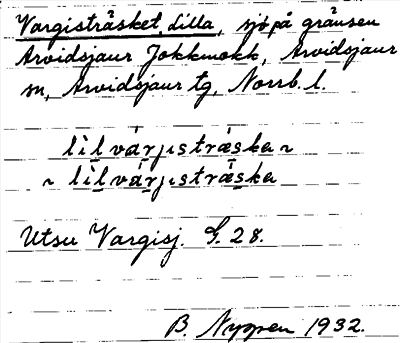 Vargisträsket, Lilla, sjö på gränsen
Arvidsjaur Jokkmokk, Arvidsjaur
sn, Arvidsjaur tg, Norrb. l.
lìlvárjısträ́ska ~
~ lìlvárjısträ́ska
Utsu Vargisj. G. 28.
B. Nygren 1932.